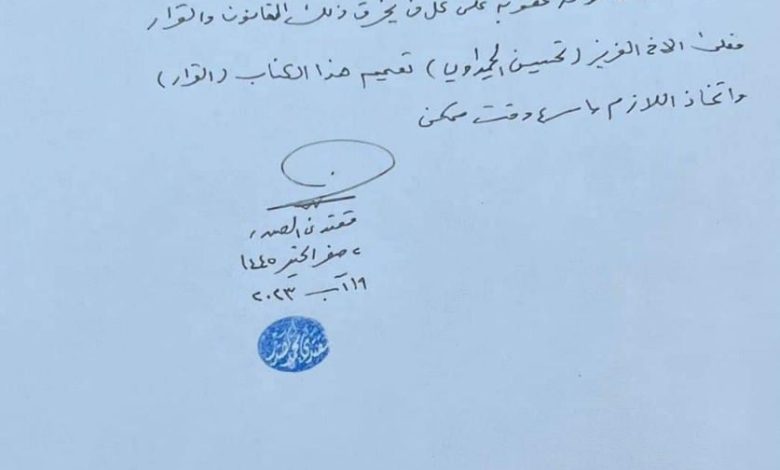 عقوبة على كل من يخرق ذلك القانون والقرار
فعلى الاخ العزيز (تحسين الحميداوي) تعميم هذا الكتاب (القرار)
واتخاذ اللازم باسرع وقت ممكن
مقتدى الصدر
٢ صفر الخير ١٤٤٥
١٩ آب ٢٠٢٣